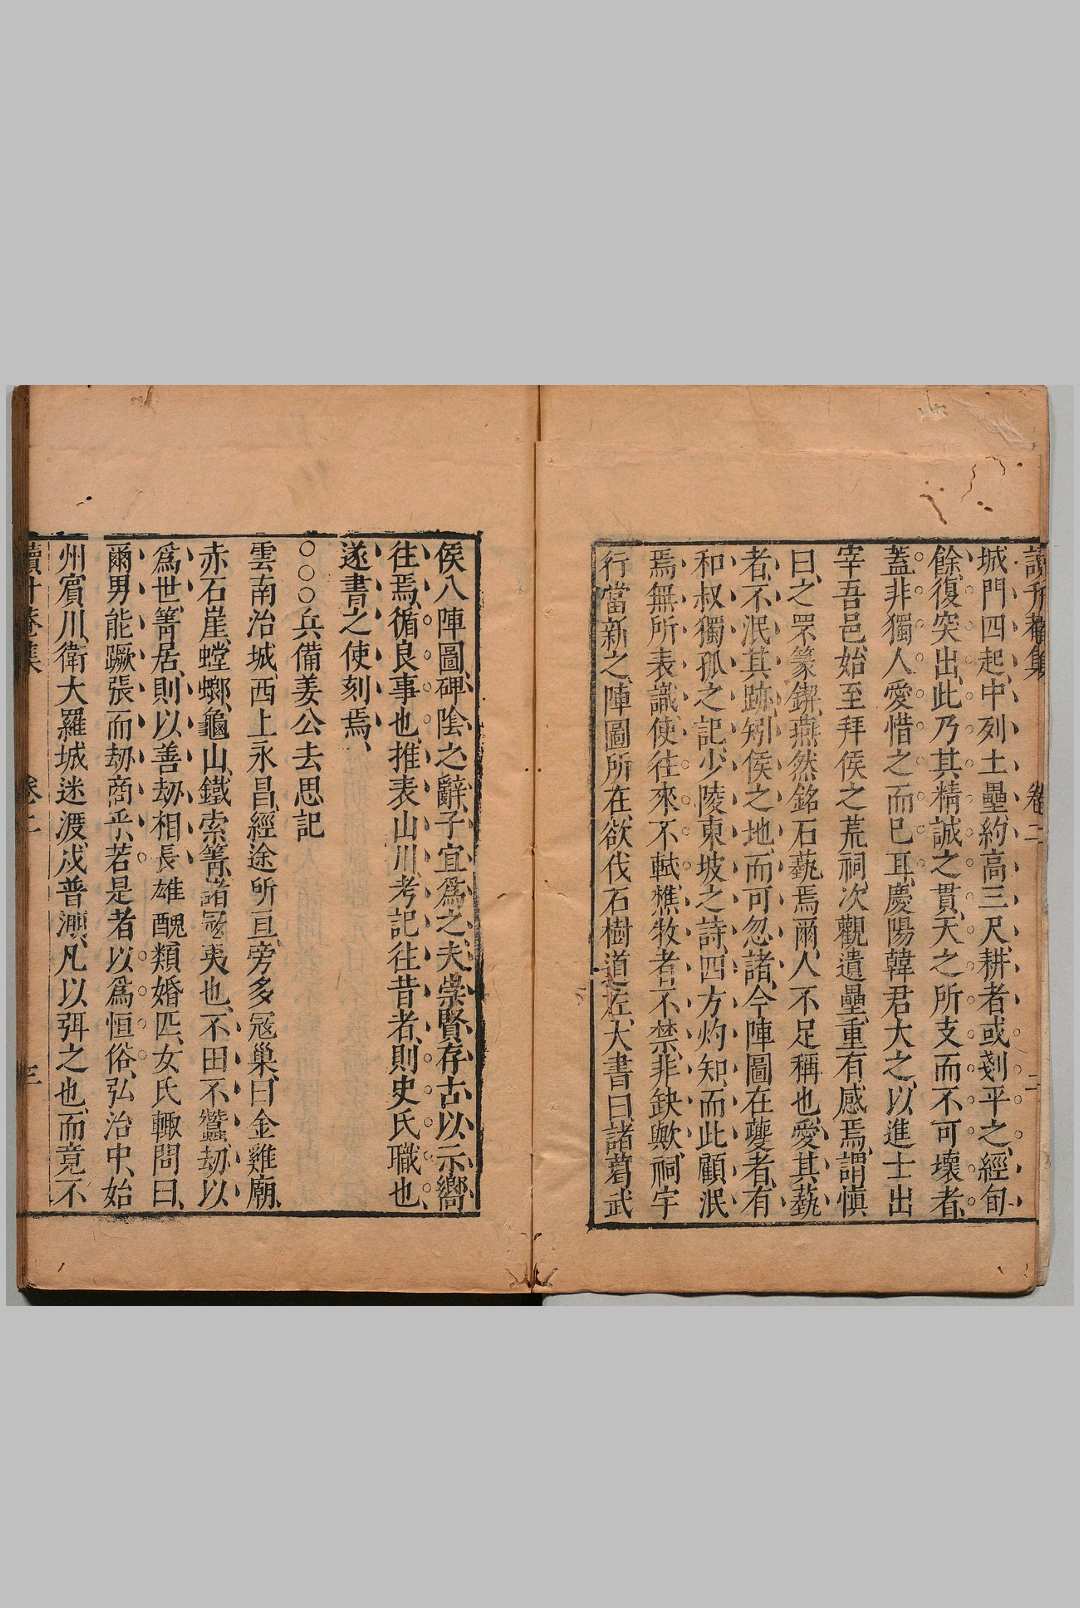 讀升菴集 卷二 二
城門四起中列土壘約高三尺耕者或剗平之經旬
餘復突出此乃其精誠之貫天之所支而不可壞者
蓋非獨人愛惜之而已耳慶陽韓君大之以進士出
宰吾邑始至拜侯之荒祠次觀遺壘重有感焉謂愼
曰之罘篆鍥燕然銘石蓺焉爾人不足稱也愛其蓺
者不泯其跡矧侯之地而可忽諸今陣圖在夔者有
和叔獨孤之記少陵東坡之詩四方灼知而此顧泯
焉無所表識使往來不軾樵牧者不禁非缺歟祠宇
行當新之陣圖所在欲伐石樹道左大書曰諸葛武
侯八陣圖碑陰之辭子宜爲之夫崇賢存古以示嚮
往焉循良事也推表山川考記往昔者則史氏職也
遂書之使刻焉
○○○兵備姜公去思記
雲南治城西上永昌經途所亘旁多冦巢曰金雞廟
赤石崖螳螂龜山鐵索箐諸冦夷也不田不蠶刼以
爲世箐居則以善刼相長雄醜類婚匹女氏輙問曰
爾男能蹶張而刼商乎若是者以爲恒俗弘治中始
州賓川衛大羅城迷渡戍普淜凡以弭之也而竟不
讀升菴集 卷二 三